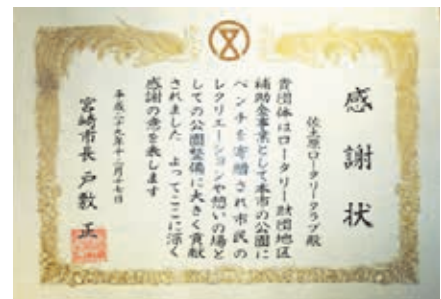 感謝状
佐土原ロータリークラブ殿
貴団体はロータリー財団地区
補助金事業として本市の公園に
ベンチを寄贈され市民の
レクリエーションや憩いの場と
しての公園整備に大きく貢献
されました よってここに深く
感謝の意を表します
平成二十九年十二月十七日
宮崎市長 戸敷 正